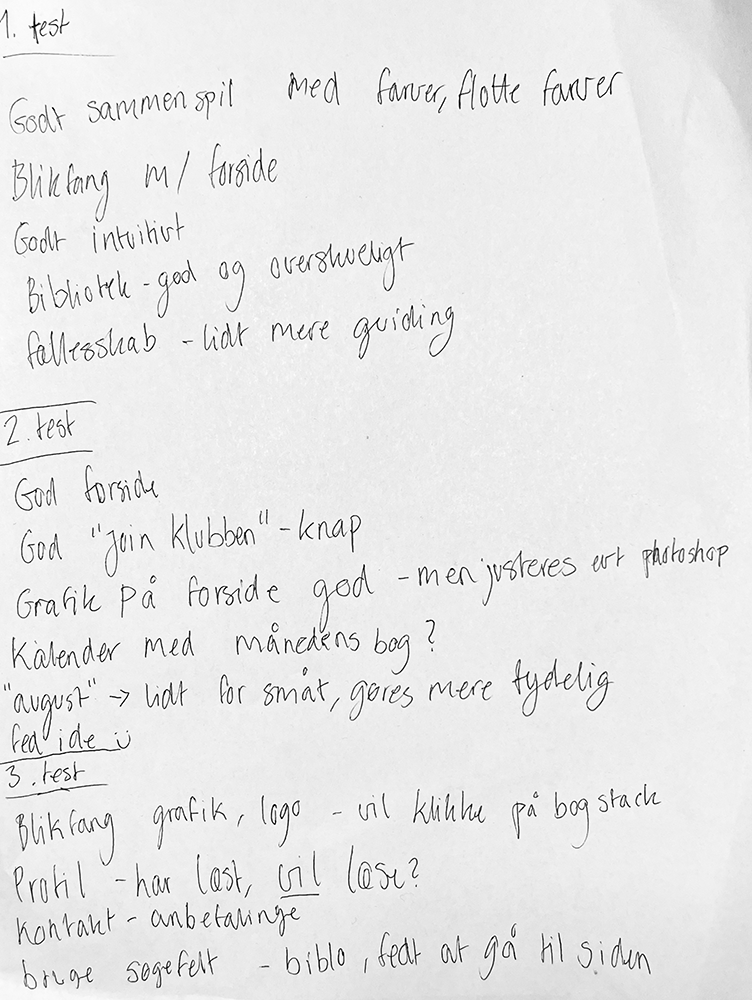 1. test
Godt sammenspil med farver, flotte farver
Blikfang m/ forside
Godt intuitivt
Bibliotek - god og overskueligt
fællesskab - lidt mere guiding
2. test
God forside
God "Join klubben" - knap
Grafik på forside god - men justeres evt photoshop
Kalender med månedens bog?
"august" → lidt for småt, gøres mere tydelig
fed ide ü
3. test
Blikfang grafik, logo - vil klikke på bog stack
Profil - har læst, vil læse?
Kontakt - anbefalinge
bruge søgefelt - biblo, fedt at gå til siden